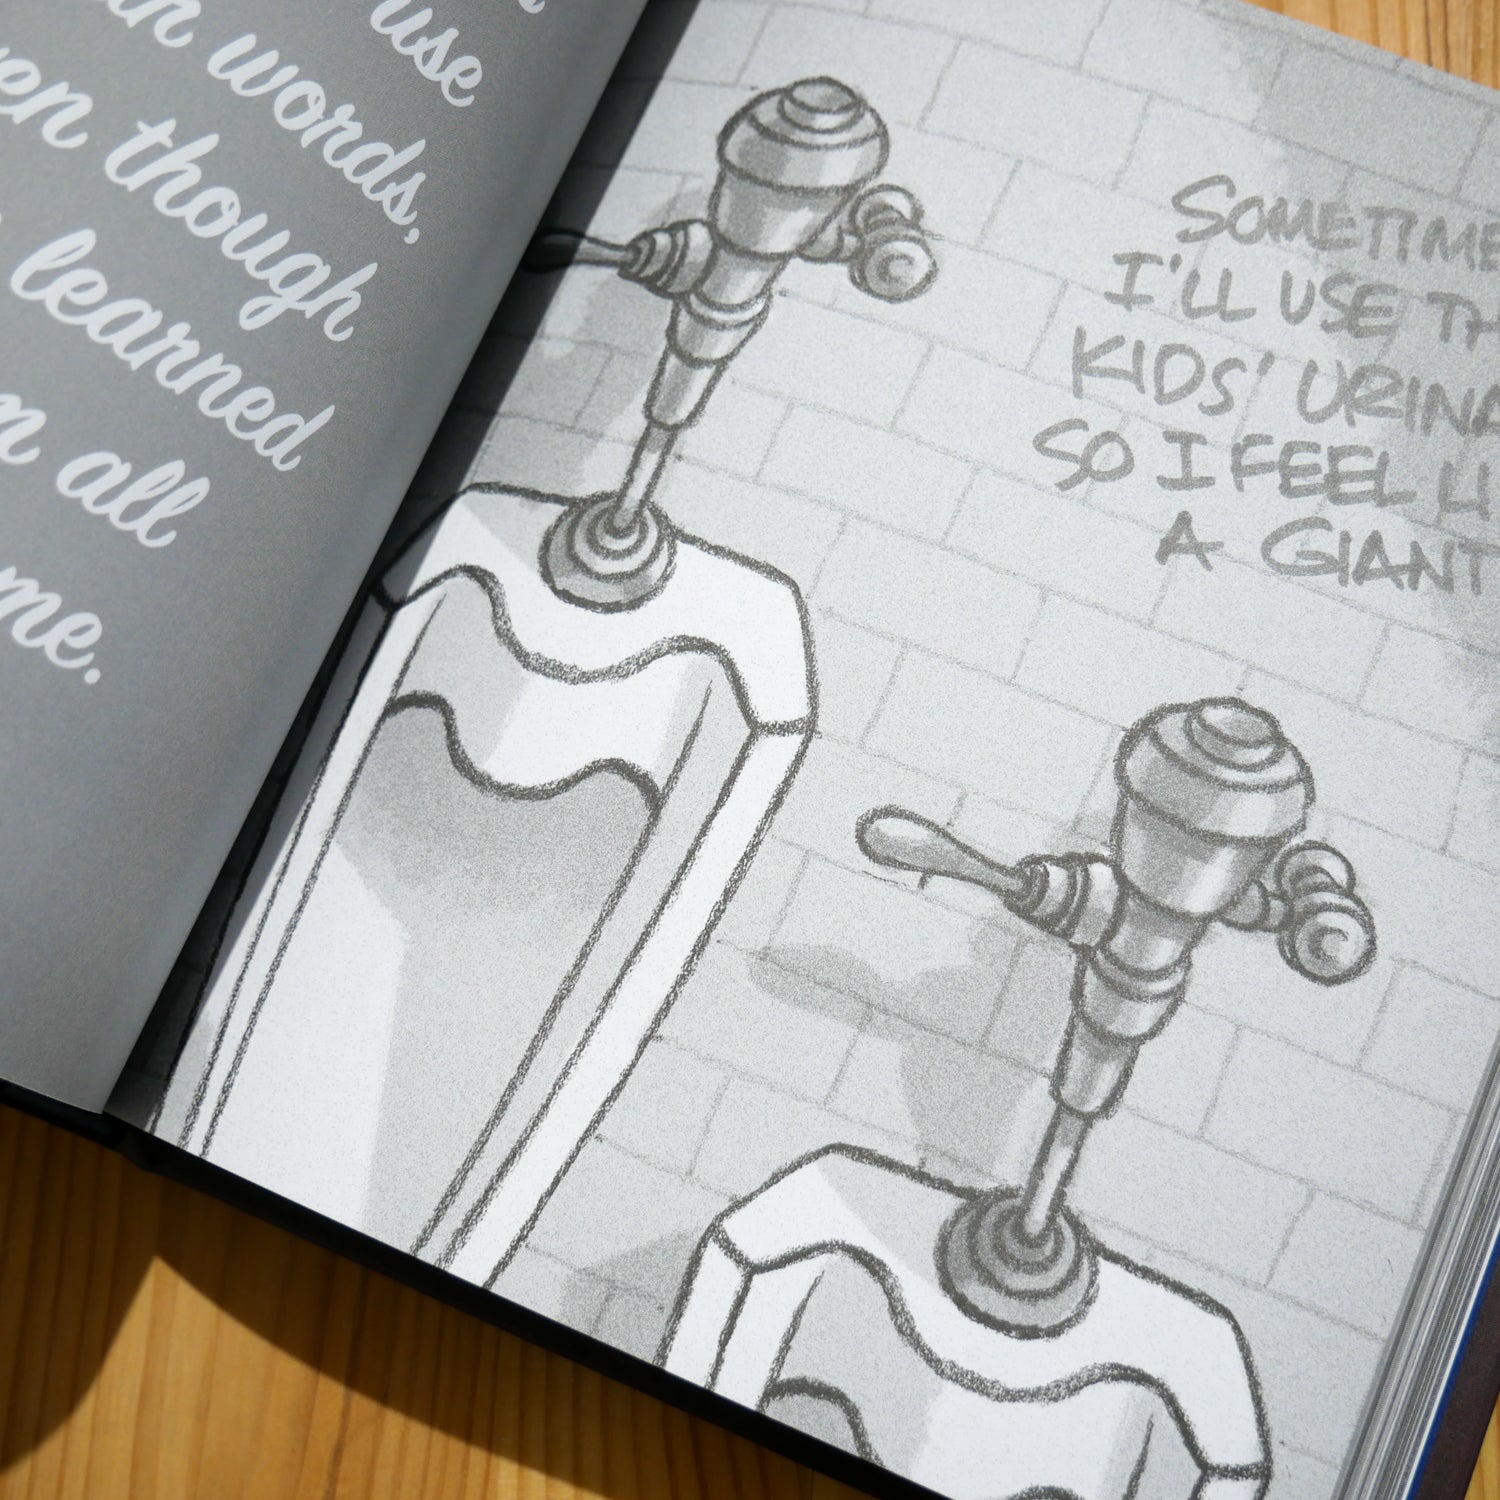 use
words,
though
learned
all
me.
SOMETIME
I'LL USE TH
KIDS' URINA
SO I FEEL LI
A GIANT